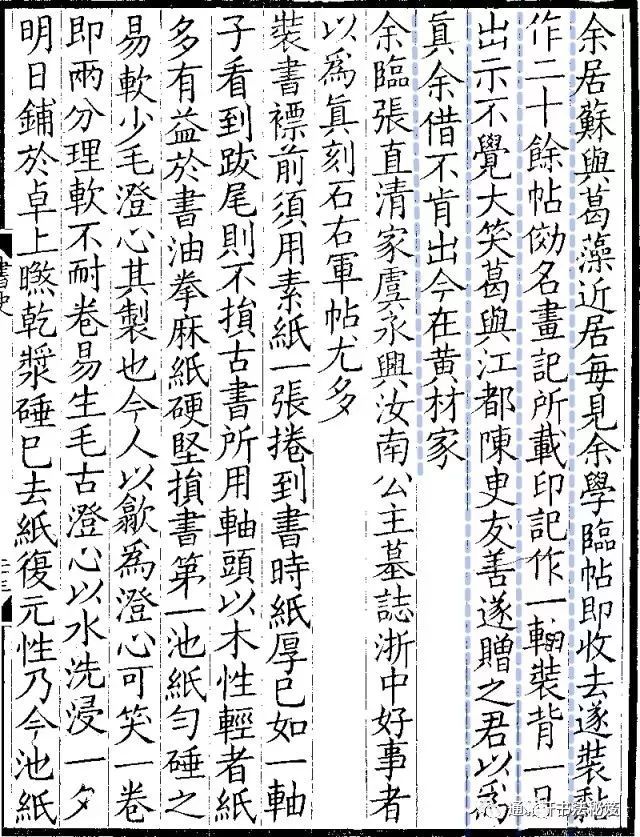 余居蘇與葛藻近居每見余學臨帖即收去遂裝黏
作二十餘帖倣名畫記所載印記作一軸裝背一日
出示不覺大笑葛與江都陳史友善遂贈之君以為
真余借不肯出今在黄材家
余臨張直清家虞永興汝南公主墓誌浙中好事者
以爲眞刻石右軍帖尤多
裝書褾前須用素紙一張捲到書時紙厚已如一軸
子看到跋尾則不損古書所用軸頭以木性輕者紙
多有益於書油拳麻紙硬堅損書第一池紙勻硾之
易軟少毛澄心其製也今人以歙為澄心可笑一卷
即兩分理軟不耐卷易生毛古澄心以水洗浸一夕
明日鋪於卓上㬠乾漿硾已去紙復元性乃今池紙
書史
二三